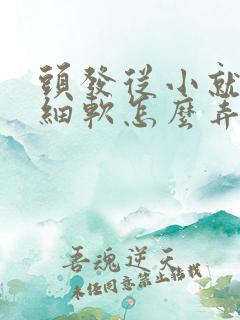 頭發從小就
細軟怎麼弄
吾魂逆天
未經同意禁止轉載